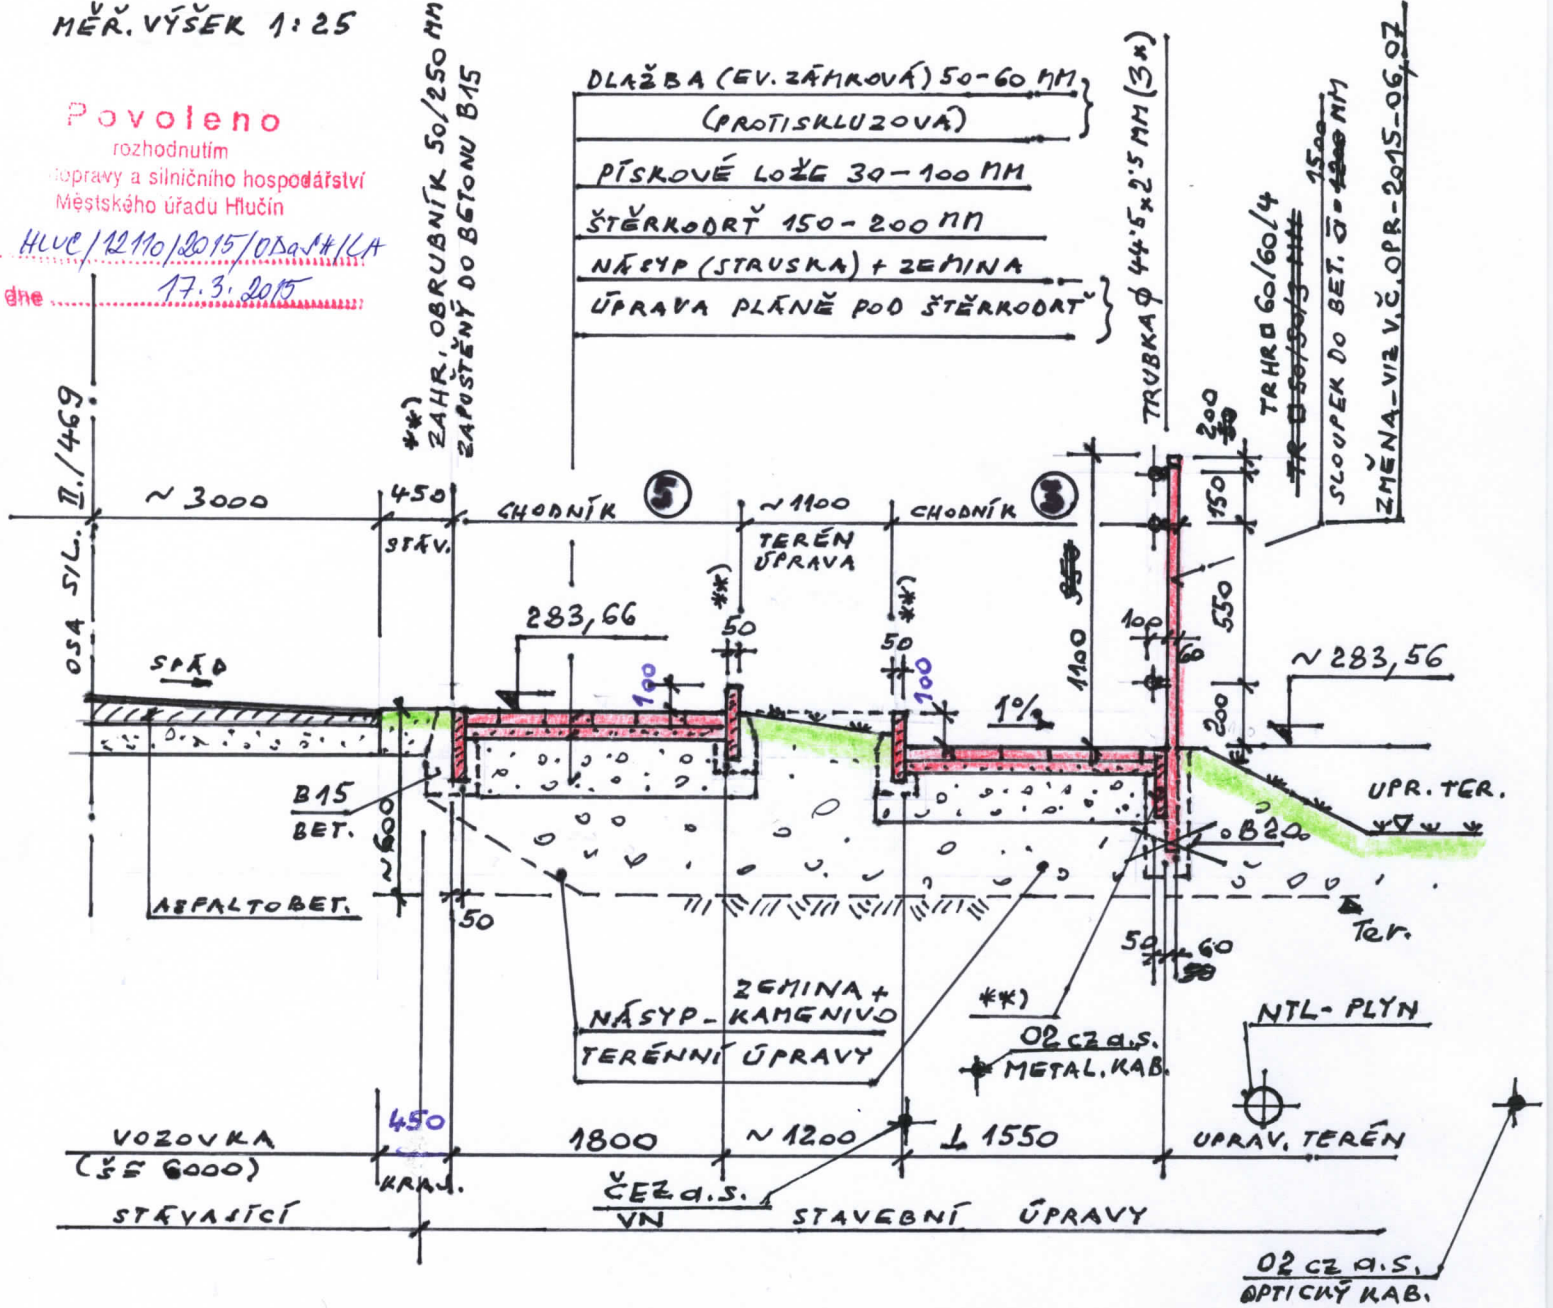 MĚŘ. VÝŠEK 1:25
Povoleno
rozhodnutím
dopravy a silničního hospodářství
Městského úřadu Hlučín
HLUC/12110/2015/ODaSH/LA
dne 17.3.2015
**)
ZAHR. OBRUBNÍK 50/250 MM
ZAPUŠTĚNÝ DO BETONU B15
DLAŽBA (EV. ZÁMKOVÁ) 50-60 MM
(PROTISKLUZOVÁ)
PÍSKOVÉ LOŽE 30-100 MM
ŠTĚRKODRŤ 150-200 MM
NÁSYP (STRUSKA) + ZEMINA
ÚPRAVA PLÁNĚ POD ŠTĚRKODRŤ
TRUBKA ϕ 44'5x2'5 MM (3x)
TRHR 60/60/4
TR 50/50/3 MM
1500
SLOUPEK DO BET. á 1200 MM
ZMĚNA-VIZ V.Č. OPR-2015-06,07
OSA SIL. II./469
~ 3000
450
STÁV.
CHODNÍK
5
~1100
TERÉN
ÚPRAVA
CHODNÍK
**)
**)
200
50
150
550
200
950
1100
100
60
283,66
50
100
50
100
1%
~ 283,56
SPÁD
UPR. TER.
B15
BET.
~600
B20
ASFALTOBET.
50
50
60
50
Ter.
ZEMINA +
NÁSYP - KAMENIVO
TERÉNNÍ ÚPRAVY
**)
O2 CZ a.s.
METAL. KAB.
NTL- PLYN
VOZOVKA
(Š= 6000)
450
KRAJ.
1800
~ 1200
⊥ 1550
UPRAV. TERÉN
ČEZ a.s.
VN
STÁVAJÍCÍ
STAVEBNÍ ÚPRAVY
O2 CZ a.s.
OPTICKÝ KAB.